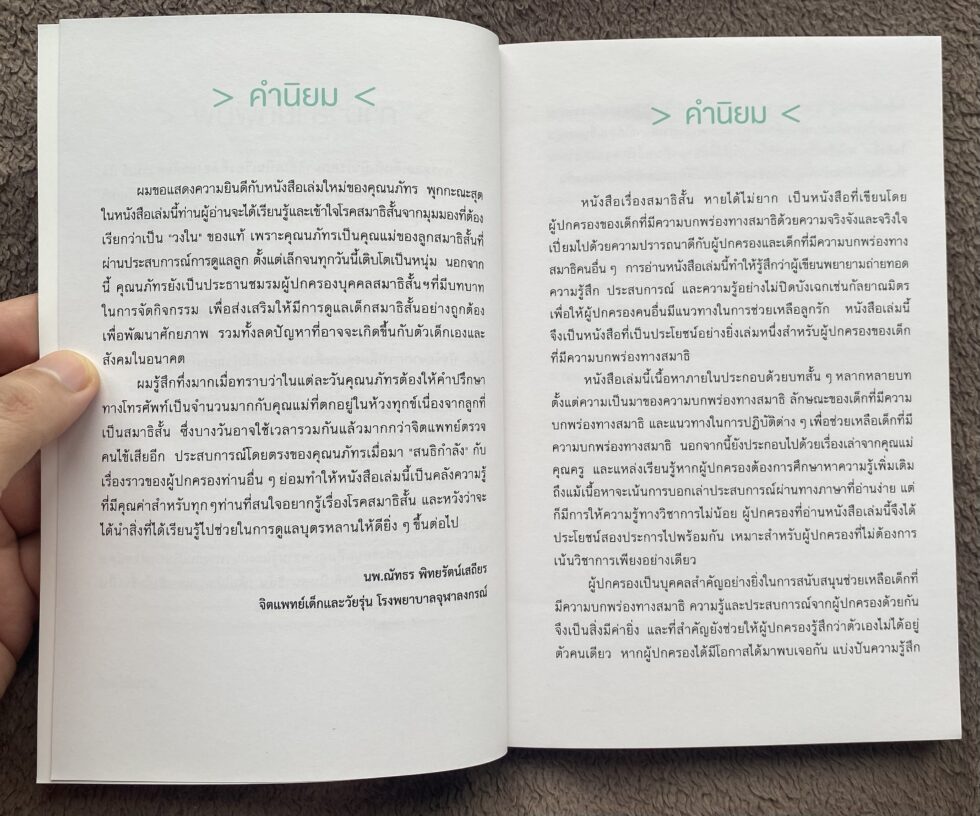 > คำนิยม <
ผมขอแสดงความยินดีกับหนังสือเล่มใหม่ของคุณนภัทร พุกกะณะสุต
ในหนังสือเล่มนี้ท่านผู้อ่านจะได้เรียนรู้และเข้าใจโรคสมาธิสั้นจากมุมมองที่ต้อง
เรียกว่าเป็น "วงใน" ของแท้ เพราะคุณนภัทรเป็นคุณแม่ของลูกสมาธิสั้นที่
ผ่านประสบการณ์การดูแลลูก ตั้งแต่เล็กจนทุกวันนี้เติบโตเป็นหนุ่ม นอกจาก
นี้ คุณนภัทรยังเป็นประธานชมรมผู้ปกครองบุคคลสมาธิสั้นฯที่มีบทบาท
ในการจัดกิจกรรม เพื่อส่งเสริมให้มีการดูแลเด็กสมาธิสั้นอย่างถูกต้อง
เพื่อพัฒนาศักยภาพ รวมทั้งลดปัญหาที่อาจจะเกิดขึ้นกับตัวเด็กเองและ
สังคมในอนาคต
ผมรู้สึกทึ่งมากเมื่อทราบว่าในแต่ละวันคุณนภัทรต้องให้คำปรึกษา
ทางโทรศัพท์เป็นจำนวนมากกับคุณแม่ที่ตกอยู่ในห้วงทุกข์เนื่องจากลูกที่
เป็นสมาธิสั้น ซึ่งบางวันอาจใช้เวลารวมกันแล้วมากกว่าจิตแพทย์ตรวจ
คนไข้เสียอีก ประสบการณ์โดยตรงของคุณนภัทรเมื่อมา "สนธิกำลัง" กับ
เรื่องราวของผู้ปกครองท่านอื่น ๆ ย่อมทำให้หนังสือเล่มนี้เป็นคลังความรู้
ที่มีคุณค่าสำหรับทุกๆท่านที่สนใจอยากรู้เรื่องโรคสมาธิสั้น และหวังว่าจะ
ได้นำสิ่งที่ได้เรียนรู้ไปช่วยในการดูแลบุตรหลานให้ดียิ่ง ๆ ขึ้นต่อไป
นพ.ณัทธร พิทยรัตน์เสถียร
จิตแพทย์เด็กและวัยรุ่น โรงพยาบาลจุฬาลงกรณ์
> คำนิยม <
หนังสือเรื่องสมาธิสั้น หายได้ไม่ยาก เป็นหนังสือที่เขียนโดย
ผู้ปกครองของเด็กที่มีความบกพร่องทางสมาธิด้วยความจริงจังและจริงใจ
เปี่ยมไปด้วยความปรารถนาดีกับผู้ปกครองและเด็กที่มีความบกพร่องทาง
สมาธิคนอื่น ๆ การอ่านหนังสือเล่มนี้ทำให้รู้สึกว่าผู้เขียนพยายามถ่ายทอด
ความรู้สึก ประสบการณ์ และความรู้อย่างไม่ปิดบังเฉกเช่นกัลยาณมิตร
เพื่อให้ผู้ปกครองคนอื่นมีแนวทางในการช่วยเหลือลูกรัก หนังสือเล่มนี้
จึงเป็นหนังสือที่เป็นประโยชน์อย่างยิ่งเล่มหนึ่งสำหรับผู้ปกครองของเด็ก
ที่มีความบกพร่องทางสมาธิ
หนังสือเล่มนี้เนื้อหาภายในประกอบด้วยบทสั้น ๆ หลากหลายบท
ตั้งแต่ความเป็นมาของความบกพร่องทางสมาธิ ลักษณะของเด็กที่มีความ
บกพร่องทางสมาธิ และแนวทางในการปฏิบัติต่าง ๆ เพื่อช่วยเหลือเด็กที่มี
ความบกพร่องทางสมาธิ นอกจากนี้ยังประกอบไปด้วยเรื่องเล่าจากคุณแม่
คุณครู และแหล่งเรียนรู้หากผู้ปกครองต้องการศึกษาหาความรู้เพิ่มเติม
ถึงแม้เนื้อหาจะเน้นการบอกเล่าประสบการณ์ผ่านทางภาษาที่อ่านง่าย แต่
ก็มีการให้ความรู้ทางวิชาการไม่น้อย ผู้ปกครองที่อ่านหนังสือเล่มนี้จึงได้
ประโยชน์สองประการไปพร้อมกัน เหมาะสำหรับผู้ปกครองที่ไม่ต้องการ
เน้นวิชาการเพียงอย่างเดียว
ผู้ปกครองเป็นบุคคลสำคัญอย่างยิ่งในการสนับสนุนช่วยเหลือเด็กที่
มีความบกพร่องทางสมาธิ ความรู้และประสบการณ์จากผู้ปกครองด้วยกัน
จึงเป็นสิ่งมีค่ายิ่ง และที่สำคัญยังช่วยให้ผู้ปกครองรู้สึกว่าตัวเองไม่ได้อยู่
ตัวคนเดียว หากผู้ปกครองได้มีโอกาสได้มาพบเจอกัน แบ่งปันความรู้สึก